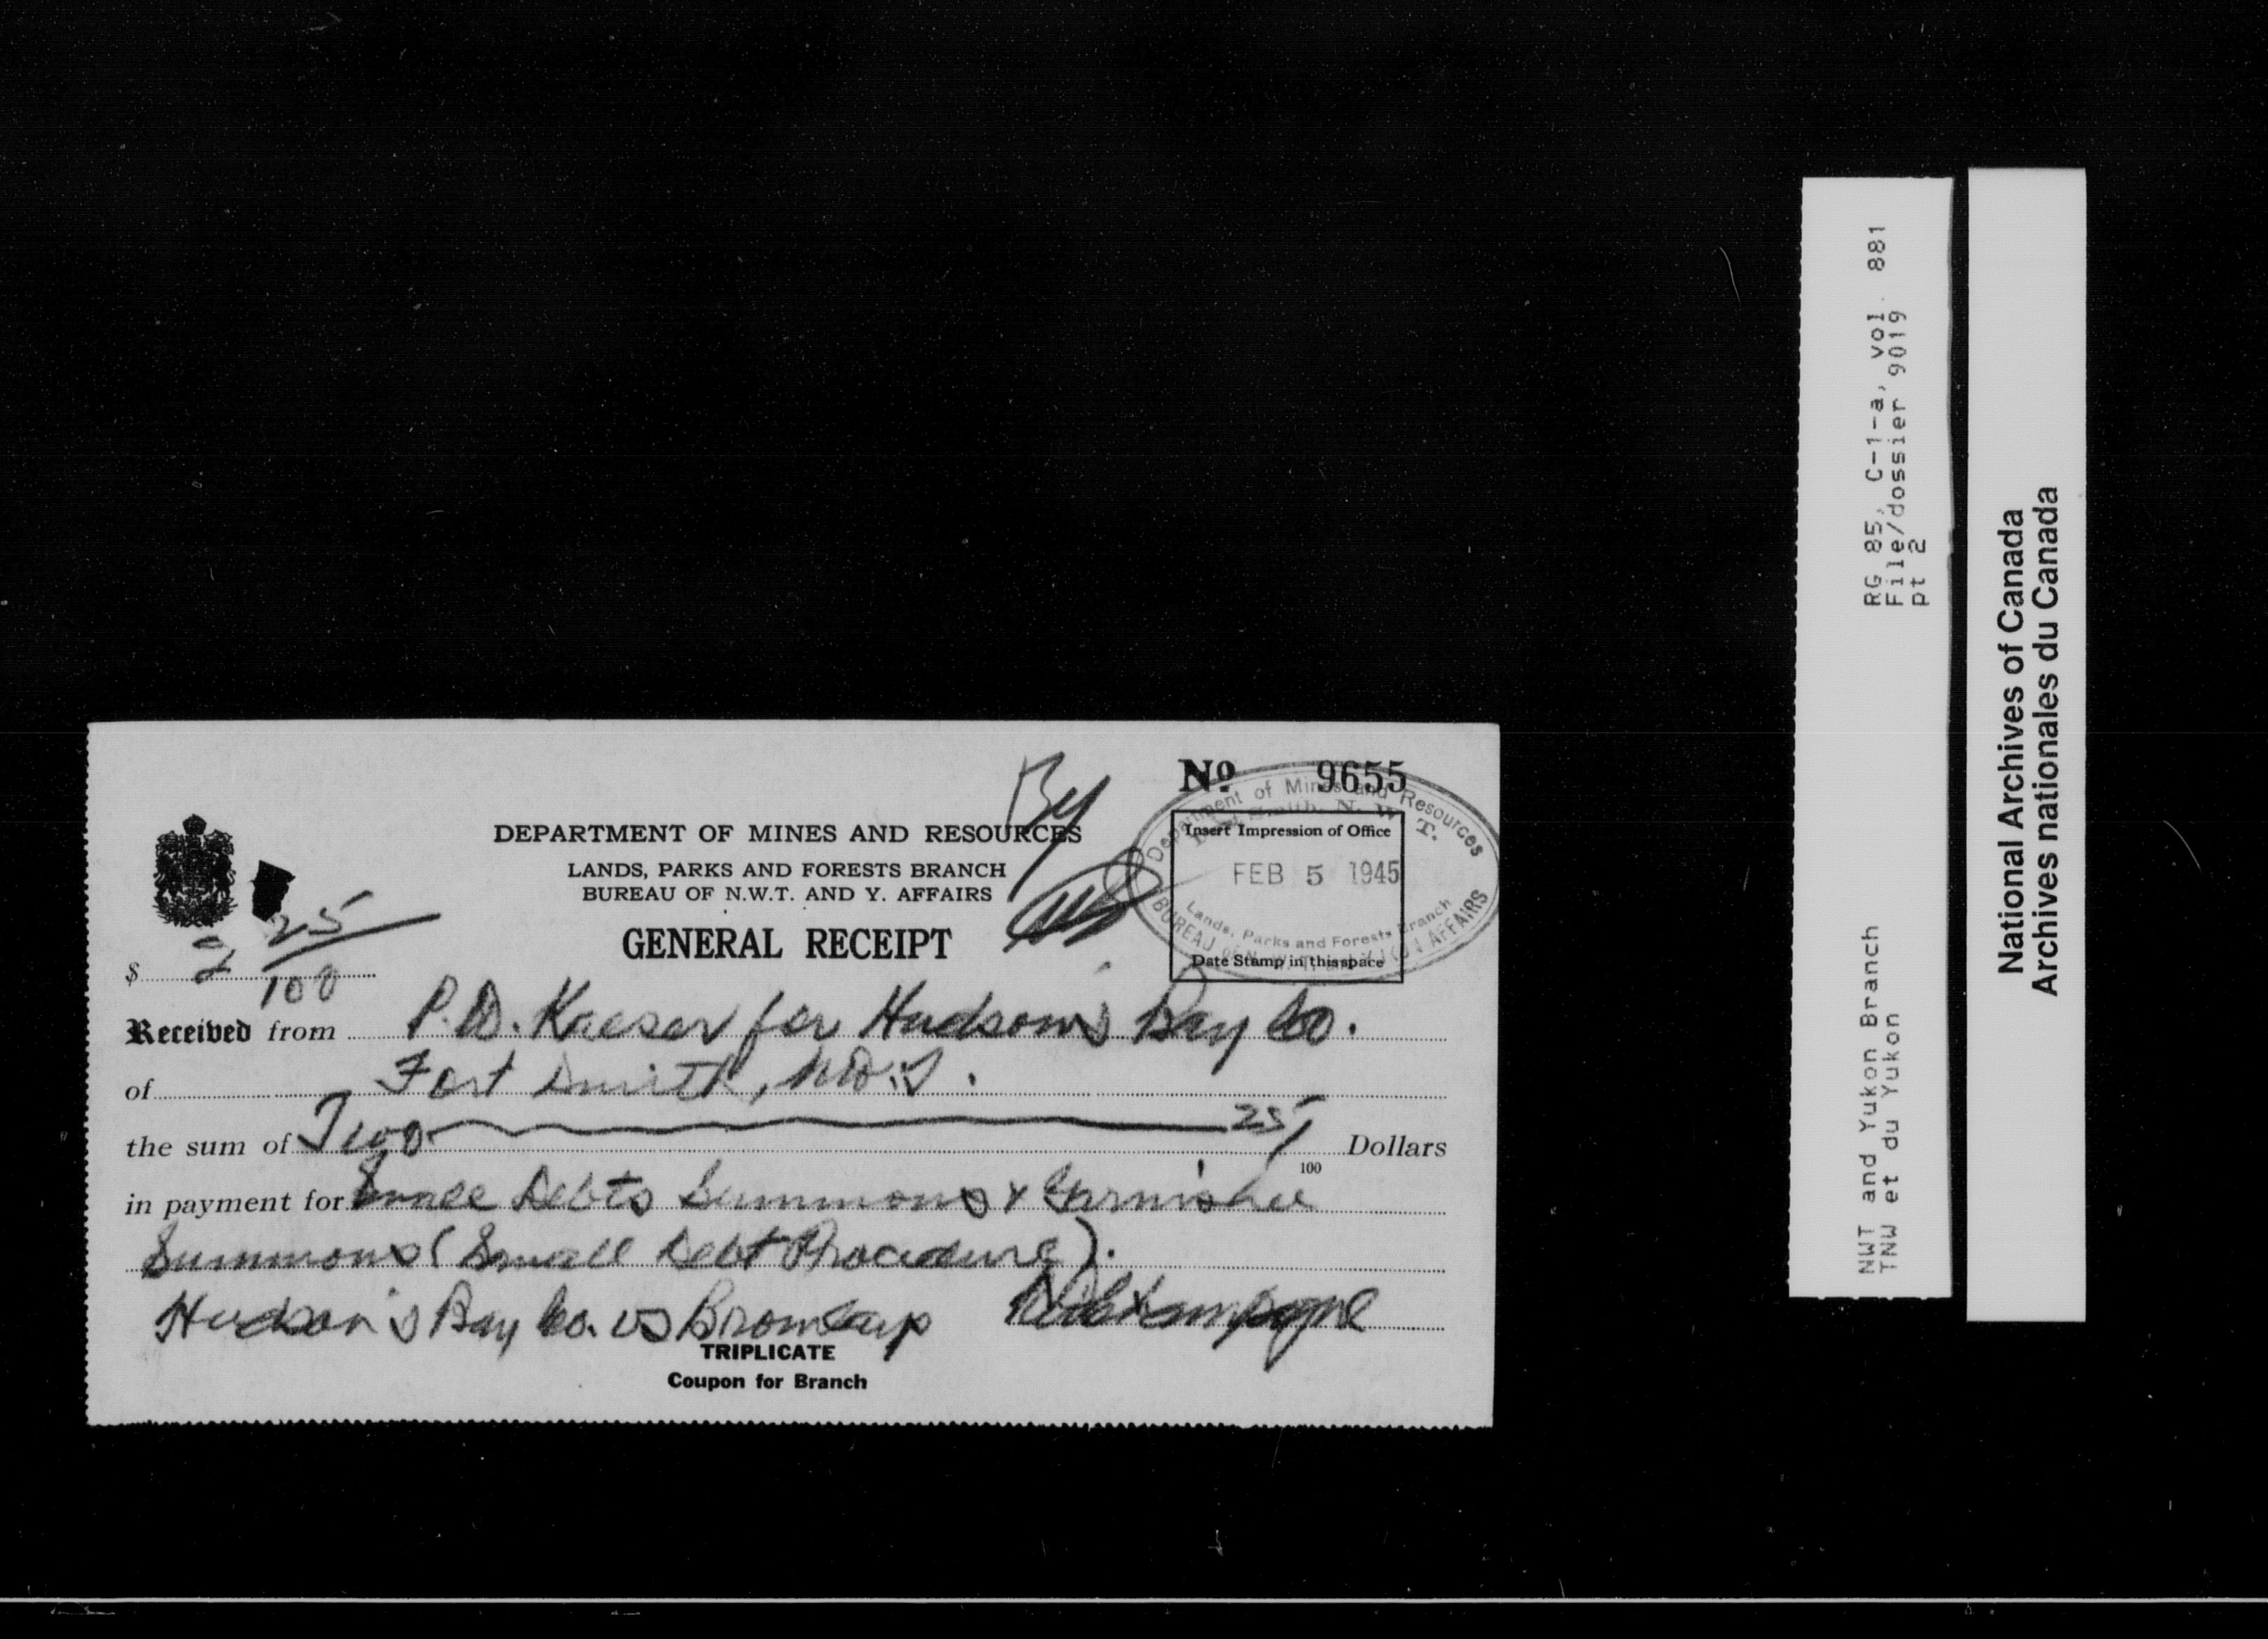 No 9655
By
DEPARTMENT OF MINES AND RESOURCES
LANDS, PARKS AND FORESTS BRANCH
BUREAU OF N.W.T. AND Y. AFFAIRS
GENERAL RECEIPT
Department of Mines and Resources
Fort Smith, N. W. T.
Insert Impression of Office
FEB 5 1945
Lands, Parks and Forests Branch
BUREAU of N.W.T. AND YUKON AFFAIRS
Date Stamp in this space
$ 2 25/100
Received from P.W. Kaeser for Hudson's Bay Co.
of Fort Smith, N.W.T.
the sum of Two 25/100 Dollars
in payment for Small Debts Summons & Garnishee
Summons (Small Debt Procedure).
Hudson's Bay Co. vs
TRIPLICATE
Coupon for Branch
RG 85, C-1-a, vol. 881
File/dossier 9019
pt 2
NWT and Yukon Branch
TNW et du Yukon
National Archives of Canada
Archives nationales du Canada